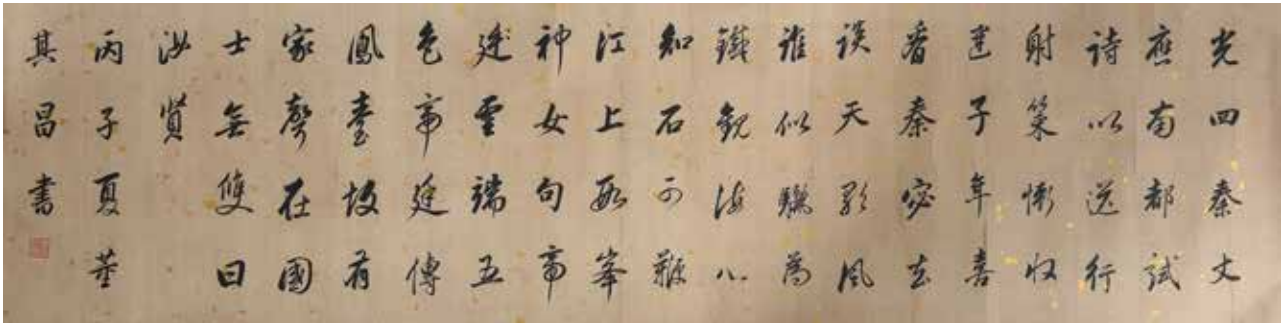 光四秦丈
應南都試
詩以送行
射策慚收
建子年喜
看秦宓去
談天影風
誰似驪為
鐵觀海八
知石可鞭
江上數峯
神女句帝
廷雲端五
色帝廷傳
鳳臺故有
家聲在國
士無雙曰
汝賢
丙子夏董
其昌書